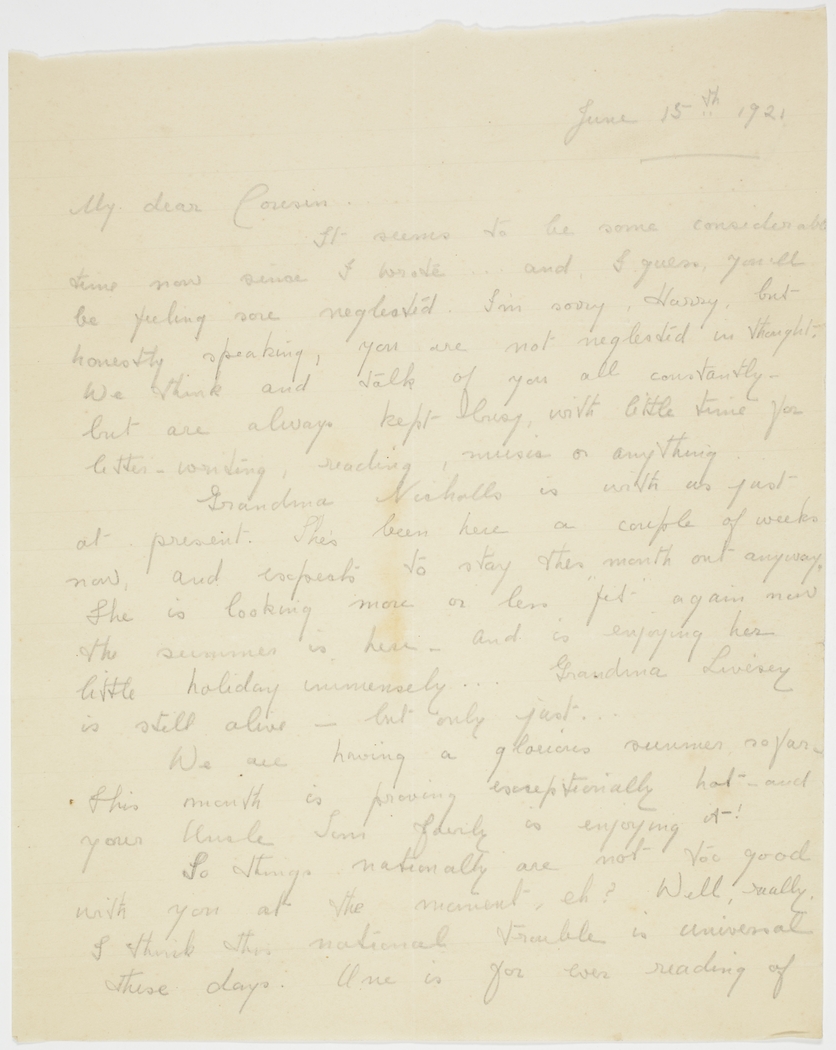 June 15th 1921
My dear Cousin
It seems to be some considerable
time now since I wrote ... and, I guess, you'll
be feeling sore neglected. I'm sorry, Harry, but
honestly speaking, you are not neglected in thought.
We think and talk of you all constantly -
but are always kept busy, with little time for
letter-writing, reading, music or anything.
Grandma Nicholls is with us just
at present. She's been here a couple of weeks
now, and expects to stay this month out anyway.
She is looking more or less "fit" again now
the summer is here - and is enjoying her
little holiday immensely... Grandma Livesey
is still alive - but only just...
We are having a glorious summer so far -
This month is proving exceptionally hot - and
your Uncle Jim fairly is enjoying it!
So things nationally are not too good
with you at the moment, eh? Well, really,
I think this national trouble is universal
these days. One is for ever reading of